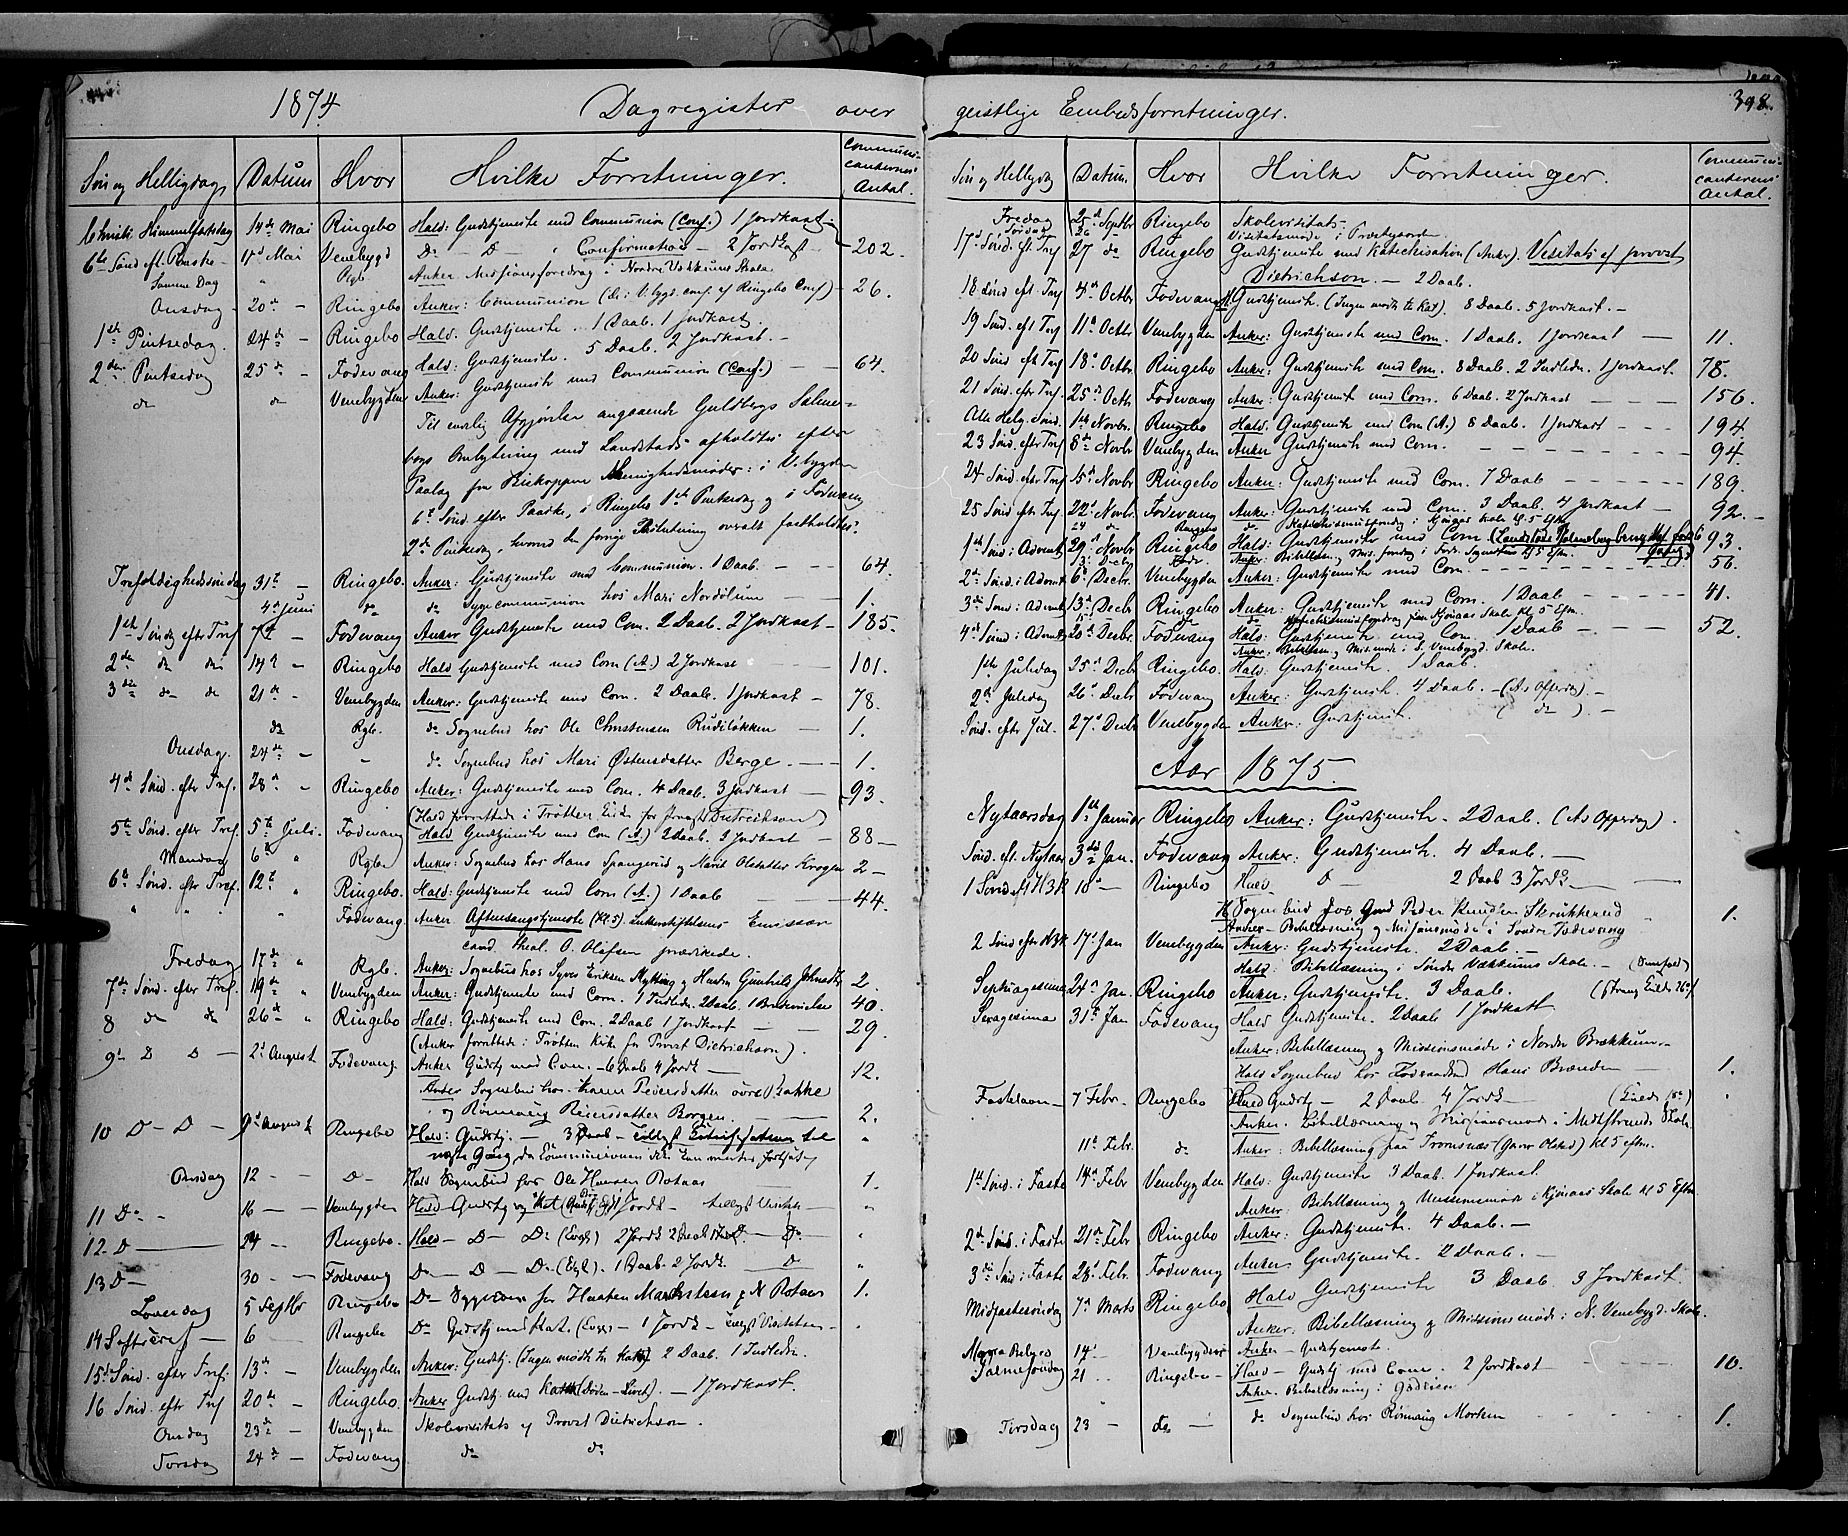 1874 Dagregister over
Søn og Helligdag Datum Hvor Hvilke Forretninger. Communicanternes Antal.
Christi Himmelfartsdag 14de Mai Ringebo Hald: Gudstjeneste med Communion (Conf.) 1 Jordkast
6te Sønd. eft. Paaske 17de Mai Venebygd Do - Do Confirmation - 2 Jordkast - 202.
Samme Dag " Rgb. Anker: Missionsforedrag i Nordre Vekkums Skole
Onsdag 20de - Ringebo Anker: Communion (de i V.bygd. conf. af Ringebo Conf) - 26.
1ste Pintsedag. 24de - Ringebo Hald: Gudstjeneste. 1 Daab. 1 Jordkast.
2den Pintsedag 25de - Fodevang Hald: Gudstjeneste. 5 Daab. 2 Jordkast. -
do do Venebygden Anker: Gudstjeneste med Communion (Conf.) - - 64.
Til endelig Afgjørelse angaaende Guldbergs Salme-
bogs Ombytning med Landstads afholdtes efter
Paalæg fra Biskoppen Menighedsmøder: i V.bygden
6te Sønd. efter Paaske, i Ringebo 1ste Pintsedag og i Fodevang
2den Pintsedag, hvorved den forrige Beslutning overalt fastholdtes.
Trefoldighedssøndag 31te - Ringebo. Anker: Gudstjeneste med Communion. 1 Daab. - - 64.
4de Juni do do Sygecommunion hos Mari Nordølum - 1.
1ste Søndg efter Tref. 7de - Fodevang Anker Gudstjeneste med Com. 2 Daab. 2 Jordkast - 185.
2den do do 14de - Ringebo Hald Gudstjeneste med Com (A.) 2 Jordkast 101.
3die do do 21de - Venebygden Anker: Gudstjeneste med Com. 2 Daab. 1 Jordkast - 78.
do Rgb. do Sognebud hos Ole Christensen Rudiløkken - 1.
Onsdag. 24de - - do Sognebud hos Mari Østensdatter Berge. - 1.
4de Sønd. efter Tref. 28de - Ringebo Anker: Gudstjeneste med Com. 4 Daab. 3 Jordkast - 93.
(Hald forrettede i Trøtten Kirke for Provst Dietrichson)
5te Sønd. efter Tref. 5te Juli. Fodevang Hald Gudstjeneste med Com (A.) 2 Daab. 2 Jordkast - 88 -
Mandag 6te " Rgbo Anker: Sognebud hos Hans Spangrud og Marit Olsdatter Krogen 2 -
6te Sønd. efter Tref. 12te " Ringebo. Hald: Gudstjeneste med Com (A.) 1 Daab - - 44.
" " " " Fodevang Anker Aftensangstjeneste (Kl 5). Lutherstiftelsens Emissær
cand. theol. O. Olafsen prædikede.
Fredag 17de " Rgb. Anker: Sognebud hos Syver Eriksen Nytting og Hustru Gunhild Johnsdtr 2.
7de Sønd. efter Tref. 19de " Venebygden Anker: Gudstjeneste med Com. 1 Indledn. 2 Daab. 1 Brudevielse 40.
8 do do 26de " Ringebo Hald: Gudstjeneste med Com. 2 Daab 1 Jordkast - - 29.
(Anker forrettede i Trøtten Kirke for Provst Dietrichson).
9de D D - 2den August Fodevang Anker Gudstj med Com. - 6 Daab 4 Jordk - 12.
Anker Sognebud hos Karen Pedersdatter øvre Bakke
og Rønnaug Reiersdatter Borgen. - 2.
10 D - D - 9de August Ringebo Hald: Gudstj. - 3 Daab -
næste Gang, da Communionen
Onsdag 12 - - D - Hald Sognebud hos Ole Hansen Rotaas 1.
11 Do - 16 - Venebygden Hald - Gudstj og Kat
12 D - 24 - Ringebo. Hald - D - Do (Evgl) 2 Jordk 2 Daab
13 D - 30 - - Fodevang Do - D - Do (Evgl). 1 Daab - 2 Jordk. D
Løverdag 5 Septbr Ringebo Do - 1.
14 S eft Tref - 6 Ringebo Do Gudstj med Kat. (Evgl) - 1 Jordk -
15de Sønd. efter Tref. 13de - Venebygden Anker: Gudstj. (Ingen mødte til Kat) 2 Daab. 1 Indledn.
16 Sønd. eftr Tref 20de - Ringebo. Anker Gudstj. med Kat (Døden - Livet). - 1 Jordkast.
Onsdag 23de - Venebygden Skolevisitats af Provst Dietrichson.
Torsdag 24de - Fodevang do do
geistlige Embedsforretninger. 398.
Søn og Helligdg Datum. Hvor Hvilke Forretninger. Communicanternes Antal.
Fredag 25de Septbr Ringebo Skolevisitats-
Lørdag 26 Visitatsmøde i Præstegaarden
17de Sønd. eft. Tref 27 do Ringebo Gudstjeneste med Katechisation (Anker). Visitats af provst
Dietrichson. - 2 Daab.
18 Sønd eft. Tref 4de Octbr Fodevang H. Gudstjeneste (Ingen mødte til Kat). 8 Daab. 5 Jordkast. -
19 Sønd. eft Tref 11te Octbr Venebygden Anker: Gudstjeneste med Com. 1 Daab. 1 Jordkast - 11.
20 Sønd eft Tref 18de Octbr Ringebo Anker: Gudstjeneste med Com. 8 Daab. 2 Indledn. 1 Jordkast. 78.
21 Sønd. efter Tref. 25de Octbr Fodevang Anker: Gudstjeneste med Com. 6 Daab. 2 Jordkast - - - 156.
Alle Helg. Sønd. 1ste Novbr. Ringebo Hald: Gudstjeneste med Com (A.) 8 Daab. 1 Jordkast - - - 194.
23 Sønd. efter Tref 8de Novbr Venebygden Anker Gudstjeneste med Com. - - - 94.
24 Sønd. efter Tref 15de Novbr Ringebo Anker: Gudstjeneste med Com. 1 Daab - - - 189.
25 Sønd efter Tref. 22de Novbr. Fodevang Anker: Gudstjeneste med Com. 3 Daab. 4 Jordkast - 92. -
24 do Ringebo do i Kjønaas Skole Kl. 5 Eftm
1ste Sønd: i Advent 29de Novbr Ringebo Hald: Gudstjeneste med Com (Landstads Salmebog 93.
Anker: Bibellæsn. og Mis. foredrag i Kl 5 Eftm.
2de Sønd. i Advent 6te Decbr. Venebygden Anker: Gudstjeneste med Com. - - - 56.
3die Sønd: i Advent 13de Decbr Ringebo Anker: Gudstjeneste med Com. 1 Daab - - - 41.
do Kjønaas Skole kl 5 Eftm.
4de Sønd: i Advent 20de Decbr. Fodevang Hald: Gudstjeneste med Com. 1 Daab - - - 52.
Anker: Bibellæsn. og Mis.møde i S. Venebygd. Skole.
1ste Juledag 25de Decbr Ringebo. Hald. Gudstjeneste. 1 Daab.
2den Juledag 26de Decbr Fodevang Anker: Gudstjeneste. 4 Daab. - (A's Offerdg). -
Sønd. efter Jul. 27de Decbr Venebygden Anker: Gudstjeneste. ( do ). -
Aar 1875.
Nytaarsdag 1ste Januar Ringebo Anker: Gudstjeneste - 2 Daab. (A's Offerdag).
Sønd. eft. Nytaar 3die Jan. Fodevang Anker: Gudstjeneste. 4 Daab. -
1 Sønd eft H3K 10de Ringebo Hald D - 2 Daab 3 Jordk -
H Sognebud hos Gmd Peder Knudsen Strukkerud - 1.
Anker - Bibellæsning og Missionsmøde i Søndre Fodevang
2 Sønd efter H3K 17de Jan Venebygden Anker: Gudstjeneste. 2 Daab. -
Hald: Bibellæsning i Søndre Vekkums Skole. -
Septuagesima 24de Jan. Ringebo Anker: Gudstjeneste. 3 Daab. (streng Kulde 26°)
Sexagesima 31te Jan Fodevang Hald Gudstjeneste. 2 Daab 1 Jordkast
Anker: Bibellæsning og Missionsmøde i Nordre Brækkum. -
Hald Sognebud hos Hans Brænden - 1.
Fastelavn - 7 Febr. - Ringebo Hald Gudstj - 2 Daab. 4 Jordk - (Kulde 18°)
Anker. Bibellæsning og Missionsmøde i Midtstrands Skole
11te Febr. do Anker: Bibellæsning paa Tromsnæs (Gaver Olstad) kl 5 eftm.
1ste Sønd. i Faste 14de Febr Venebygden Hald: Gudstjeneste 3 Daab. 1 Jordkast.
Anker: Bibellæsning og Missionsmøde i Kjønaas Skole kl 5 Eftm
2de Sønd. i Faste 21de Febr Ringebo Anker: Gudstjeneste. 4 Daab. -
3die Sønd i Faste 28de Febr. Fodevang Anker Gudstjeneste. 2 Daab. -
Midfastesøndag 7de Marts Ringebo Hald Gudstjeneste 3 Daab. 3 Jordkast.
Anker: Bibellæsning og Missionsmøde i N. Venebygd. Skole
Maria Bebud. 14de Venebygden Anker - Gudstjeneste.
Palmesøndag 21 .. Ringebo - Hald - Gudstj med Com. 2 Jordkast - - - 10.
Anker. Bibellæsning i
Tirsdag 23 - do - do Sognebud hos Rønnaug Morken - - - 1.